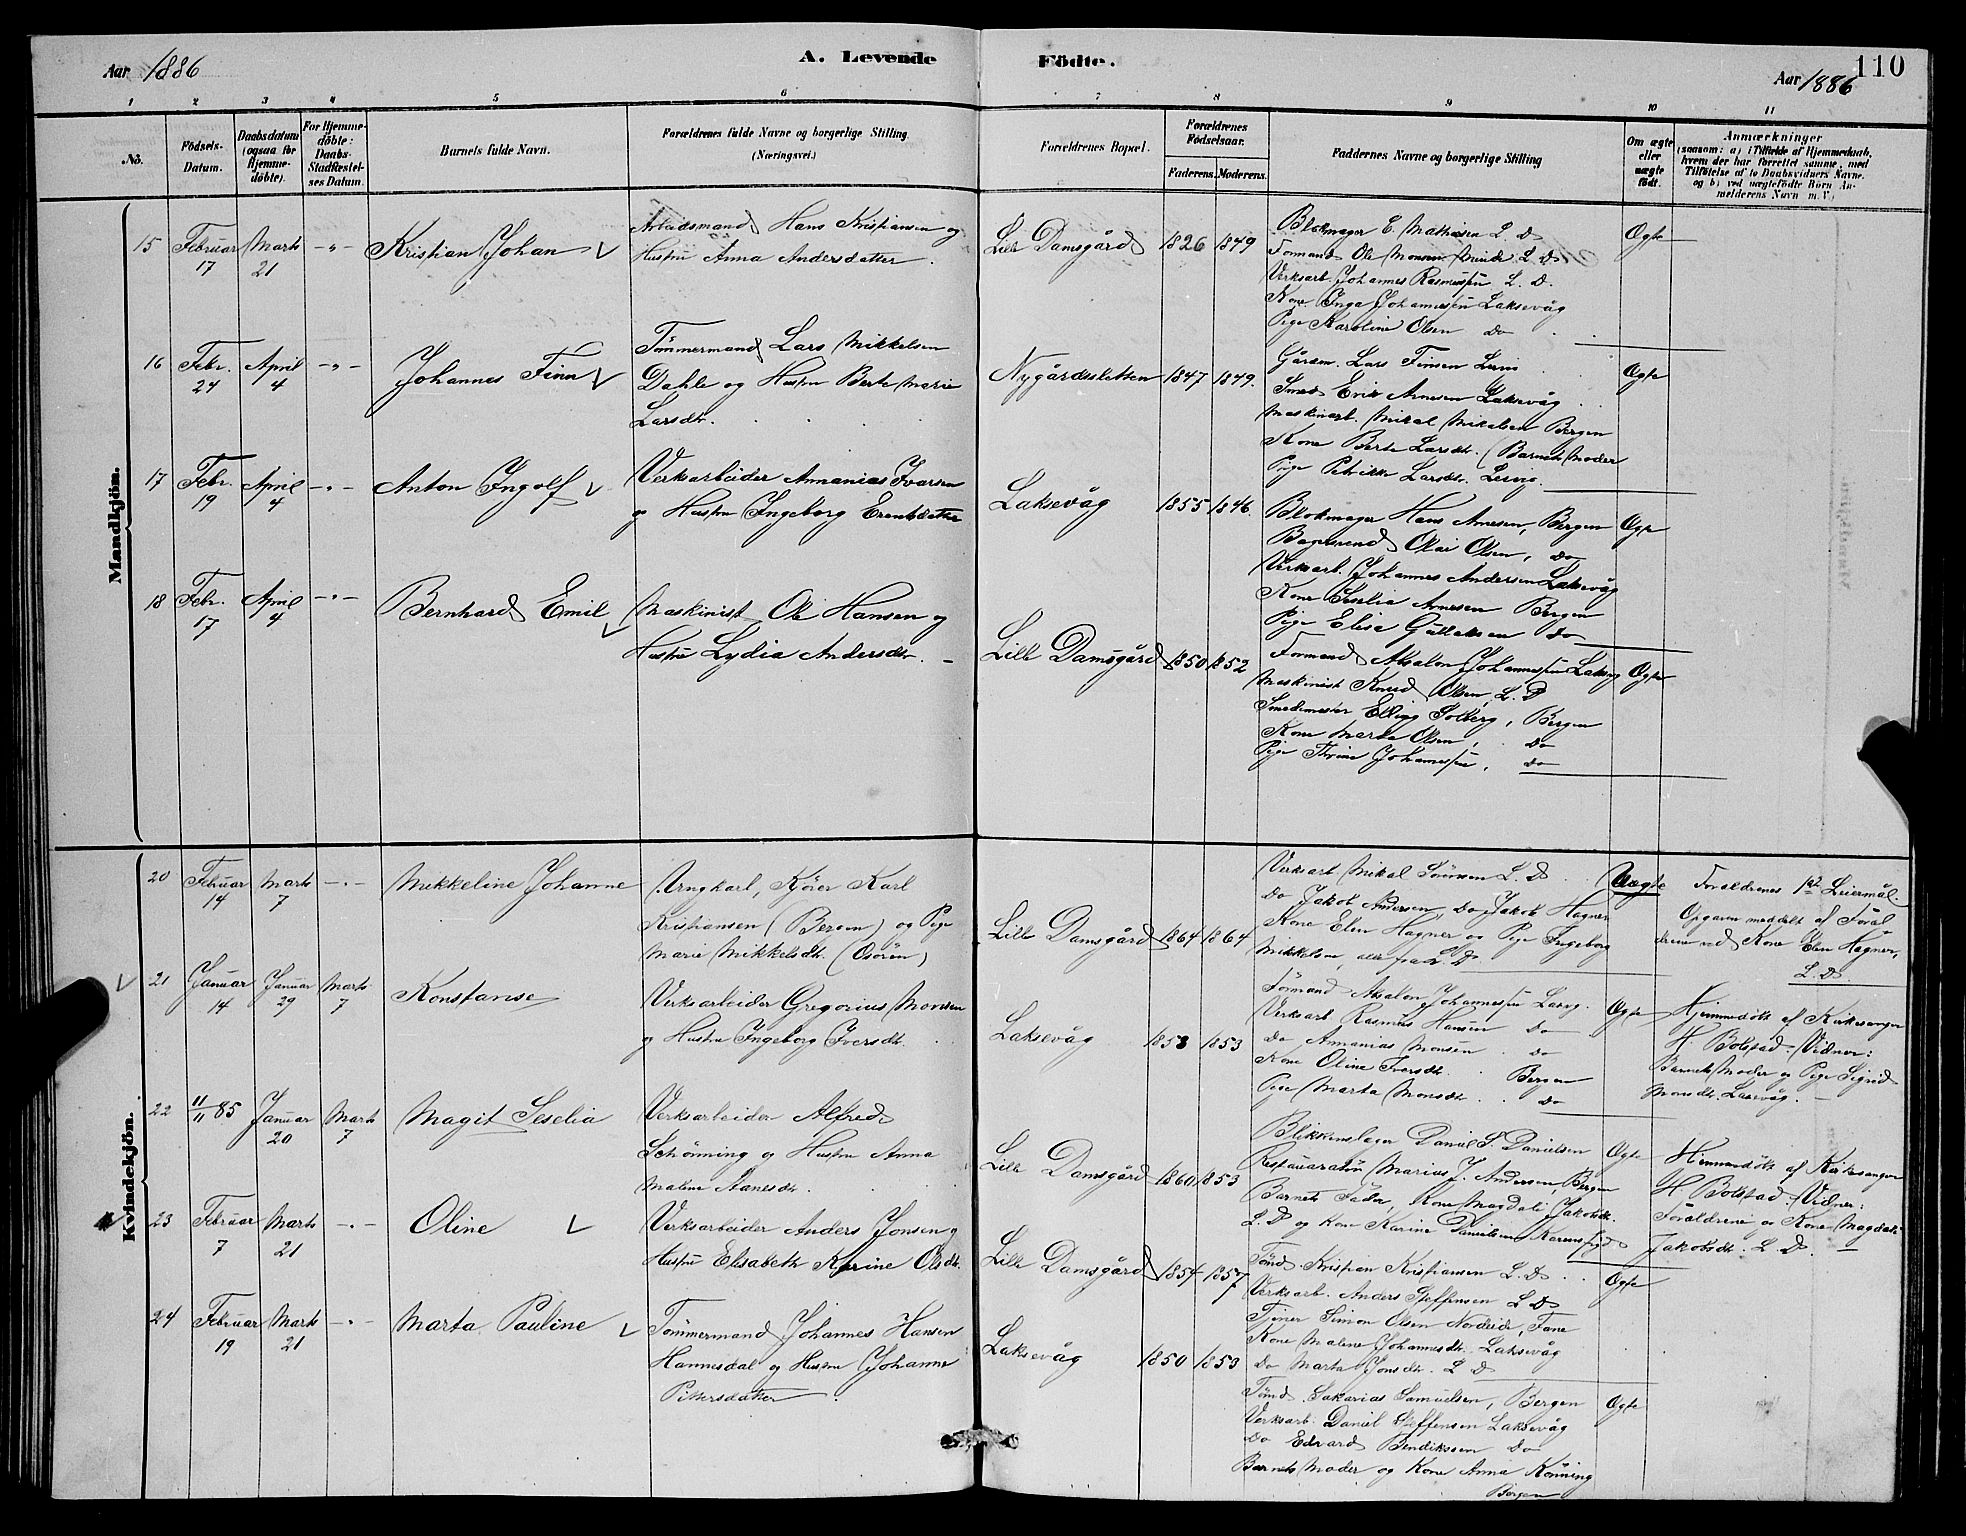 Aar 1886
A. Levende Födte.
Aar 1886
110
1 2 3 4 5 6 7 8 9 10 11
No.
Födsels-
Datum.
Daabsdatum
(ogsaa for
Hjemme-
döbte).
For Hjemme-
döbte:
Daabs-
Stadfæstel-
ses Datum.
Barnets fulde Navn.
Forældrenes fulde Navne og borgerlige Stilling.
(Næringsvei.)
Forældrenes Bopæl.
Forældrenes
Födselsaar.
Faderens. Moderens.
Faddernes Navne og borgerlige Stilling
Om ægte
eller
uægte
født.
Anmærkninger
(saasom: a) i Tilfælde af Hjemmedaab,
hvem der har forrettet samme, med
Tilföielse af to Daabsvidners Navne.
og b) ved uægtefödte Börn An-
melderens Navn m. V.)
Mandkjön.
15 Februar 17 Marts 21 -"- Kristian Johan
Arbeidsmand Hans Kristiansen og
Hustru Anna Andersdatter.
Lille Damsgård 1826 1849
Blokmager E. Mathisen L. D.
Formand Ole Monsen Minde L. D.
Verksarb Johannes Rasmussen L. D.
Kone Inga Johannessen Laksevåg
Pige Karoline Olsen do
Ægte
16 Febr. 24 April 4 -"- Johannes Finn
Tömmermand Lars Mikkelsen
Dahle og Hustru Berte Marie
Larsdtr.
Nygårdssletten 1847 1849.
Gårdm. Lars Finsen
Smed Erik Arnesen Laksevåg
Maskinarb. Mikal Mikalsen Bergen
Kone Berte Larsdtr. (Barnets Moder
Pige Petrikke Larsdtr.
Ægte
17 Febr. 19 April 4 -"- Anton Ingolf
Verksarbeider Annanias Ivarsen
og Hustru Ingeborg Erentsdatter
Laksevåg 1855 1846.
Blokmager Hans Arnesen, Bergen
Bagersvend Olai Olsen, do
Verksarb. Johannes Andersen Laksevåg
Kone Seselia Arnesen Bergen
Pige Elisa Gullaksen do
Ægte
18 Febr. 17 April 4 -"- Bernhard Emil
Maskinist Ole Hansen og
Hustru Lydia Andersdtr.
Lille Damsgård 1850 1852
Formand Absalon Johannessen Laksvg
Maskinist Knud Olsen, L. D
Smedemester Elling Solberg, Bergen
Kone Marta Olsen, do
Pige Thrine Johannessen, do
Ægte
Kvindekjön.
20 Februar 14 Marts 7 -"- Mikkeline Johanne
Ungkarl, Kjörer Karl
Kristiansen (Bergen) og Pige
Marie Mikkelsdtr. (Osören)
Lille Damsgård 1864 1864
Verksarb Mikal Sörensen L. D.
Do Jakob Andersen, Do Jakob Hagner
Kone Elen Hagner og Pige Ingeborg
Mikkelsen, alle fra L. D.
Uægte
Foraldrenes 1ste Leiermål.
Opgaven meddelt af Foral
drene ved Kone Elen Hagner,
L. D.
21 Januar 14 Januar 29 Marts 7 Konstanse
Verksarbeider Gregorius Monsen
og Hustru Ingeborg Iversdtr.
Laksevåg 1853 1853
Formand Absalon Johannessen Laxvg.
Verksarb Rasmus Hansen do
do Annanias Monsen do
Kone Oline Iversdtr. Bergen
Pige Marta Monsdtr. do
Ægte
Hjemmedöbt af Kirkesanger
H. Bolstad. Vidner:
Barnets Moder og Pige Sigrid
Monsdtr. Laxevåg.
22 11/11 85 Januar 20 Marts 7 Magit Seselia
Verksarbeider Alfred
Schönning og Hustru Anna
Malene Aanesdtr.
Lille Damsgård 1860 1853
Blikkenslager Daniel S. Danielsen
Restauratör Marius J. Andersen, Bergen
Barnets Fader, Kone Magdali Jakobsdtr.
L. D og Kone Karine Danielsen
Ægte
Hjemmedöbt af Kirkesanger
H Bolstad. Vidner:
Foraldrene og Kone Magdali
Jakobsdtr. L. D.
23 Februar 7 Marts 21 -"- Oline
Verksarbeider Anders Jonsen og
Hustru Elisabeth Karine Olsdtr.
Lille Damsgård 1854 1857
Tömd. Kristian Kristiansen L. D.
Verksarb. Anders Steffensen L. D
Tjener Simon Olsen Nordeide, Fane
Kone Malene Johannesdtr. Laksevåg
Do Marta Jonsdtr. L. D
Ægte
24 Februar 19 Marts 21 -"- Marta Pauline
Tömmermand Johannes Hansen
Hannesdal og Hustru Johanne
Pettersdatter.
Laksevåg 1850 1853
Tömd. Sakarias Samuelsen, Bergen
Verksarb. Daniel Steffensen Laksevåg
Do Edvard Bendikssen do
Barnets Moder og Kone Anna Könning
Bergen
Ægte